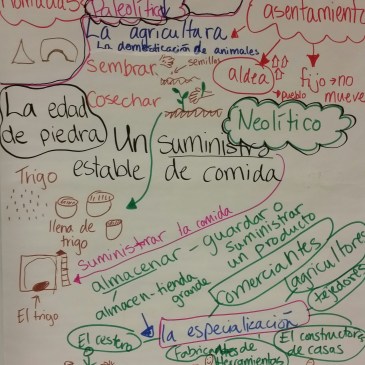 Nómadas
Paleolítico
asentamiento
La agricultura
La domesticación de animales
Sembrar
semillas
Cosechar
aldea
pueblo
fijo → no
mueve
La edad
de piedra
Neolítico
Un suministro
estable de comida
Trigo
llena de
trigo
suministrar la comida
almacenar - guardar o
suministrar
un producto
almacén - tienda
grande
comerciantes
agricultores
tejedores
El trigo
la especialización
El cestero
Fabricantes de
herramientas
El constructor
de casas